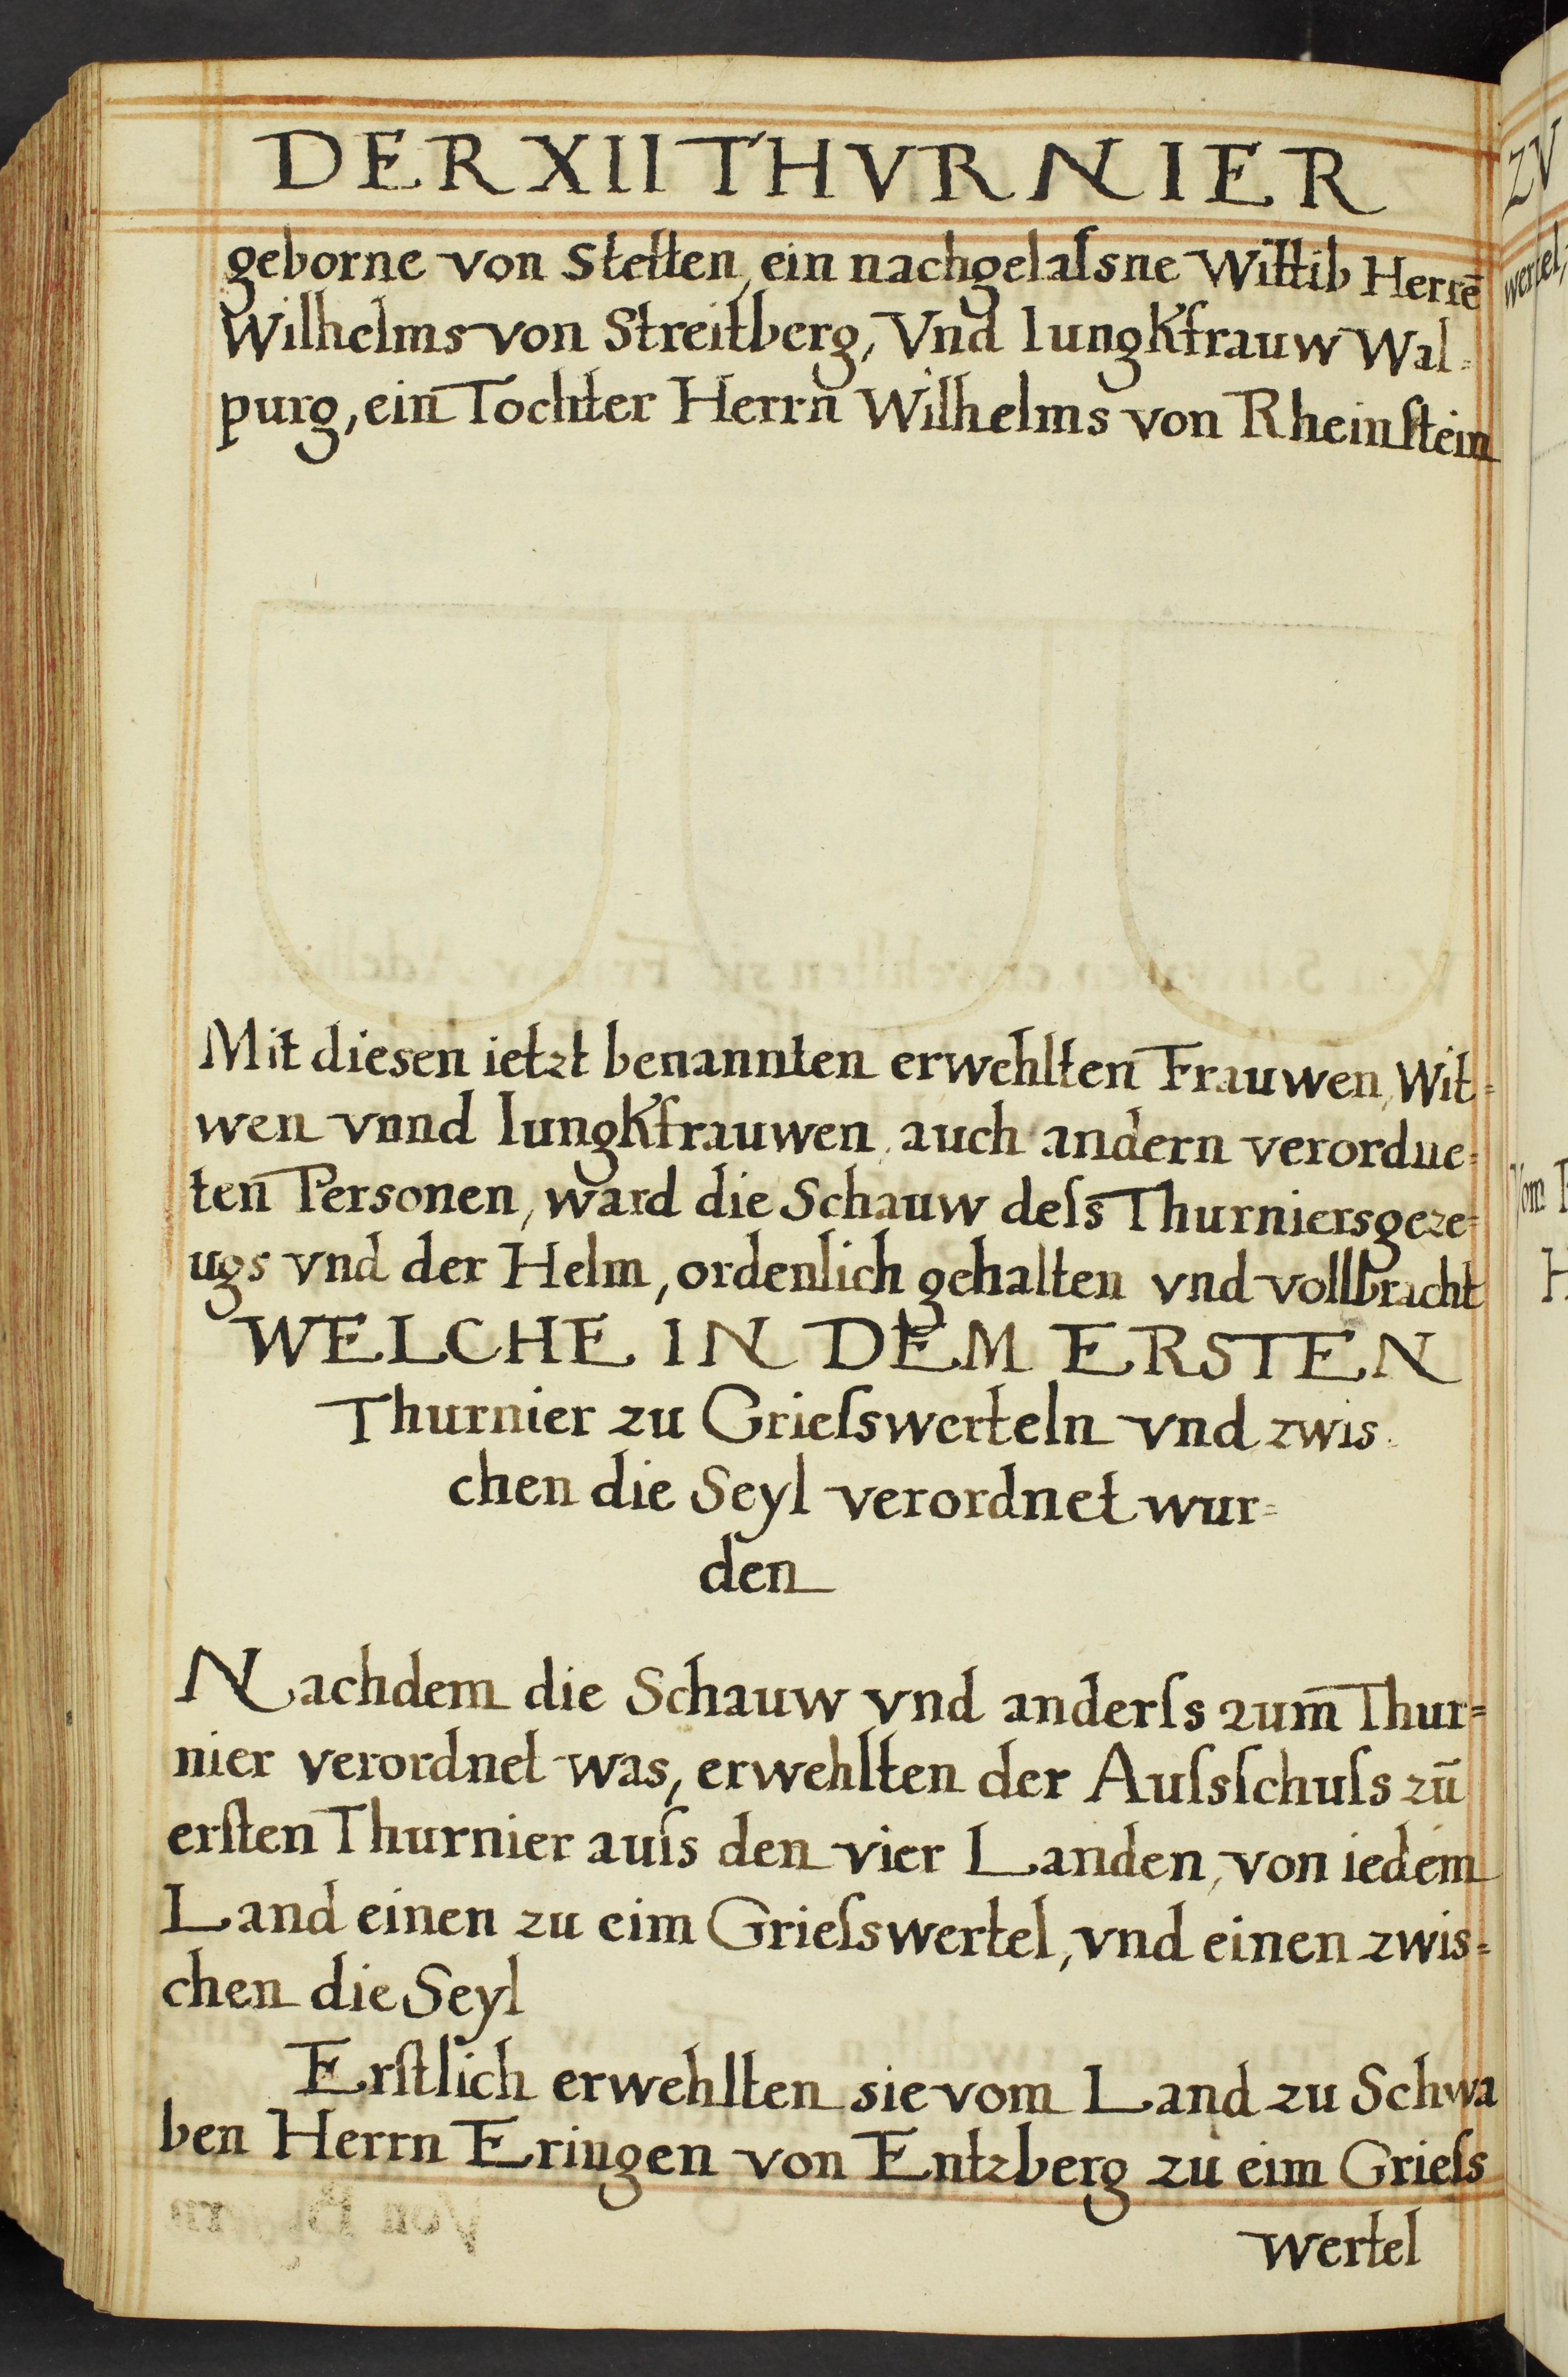 DER XII THVRNIER
geborne von Stetten, ein nachgelaſsne Wittib Herrē
Wilhelms von Streitberg, Vnd Iungkfrauw Wal=
purg, ein Tochter Herrn Wilhelms von Rheinſtein
Mit diesen ietzt benannten erwehlten Frauwen, Wit=
wen vnnd Iungkfrauwen, auch andern verordne=
ten Personen, ward die Schauw deſs Thurniersgeze=
ugs vnd der Helm, ordenlich gehalten vnd vollbracht
WELCHE IN DEM ERSTEN
Thurnier zu Grieſswerteln vnd zwis=
chen die Seyl verordnet wur=
den
Nachdem die Schauw vnd anderſs zum Thur=
nier verordnet was, erwehlten der Auſsſchuſs zū
erſten Thurnier auſs den vier Landen, von iedem
Land einen zu eim Grieſswertel, vnd einen zwis=
chen die Seyl
Erſtlich erwehlten sie vom Land zu Schwa
ben Herrn Eringen von Entzberg zu eim Grieſs
wertel
ZV
wertel,
Vom
H